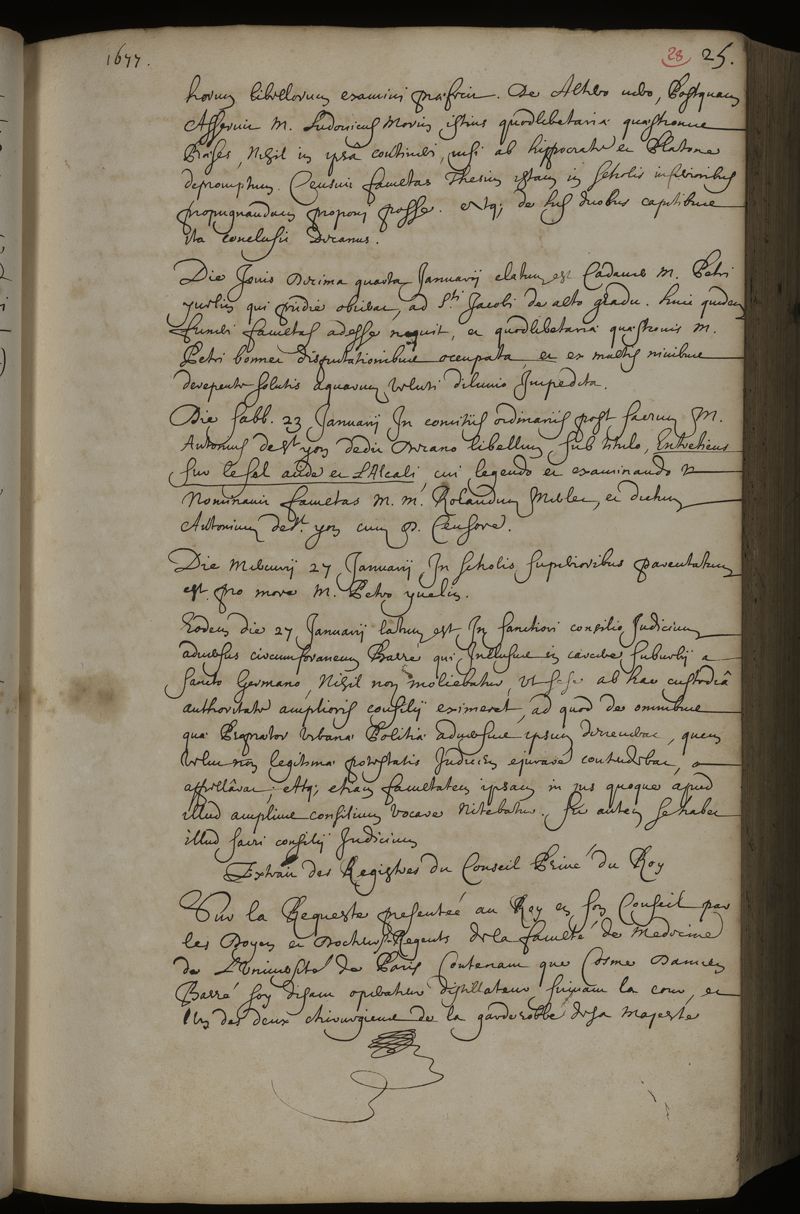 1677.
28 25.
horum libellorum examini præfecit. De Altero vero, Postquam
Asseruit M. Ludovicus Morin istius quodlibetariæ quæstionis
Præses, Nihil in ipsâ contineri, nisi ab hippocrate et Platone
depromptum. Censuit facultas Thesim istam in scholis inferioribus
propugnandam proponi posse. Atq; de his duobus capitibus
ita conclusit Decanus.
Die Jovis Decima quarta Januarij elatum est Cadaver M. Petri
yvelin qui pridie obierat, ad Sti. Jacobi de alto gradu. huic quidem
funeri facultas adesse nequit, et quodlibetariæ quæstionis M.
Petri bonnet disputationibus occupata, et ex multis nivibus
derepente solutis aquarum veluti diluvio Impedita.
Die sabb. 23 Januarij In comitiis ordinariis post sacrum M.
Antonius de St. yon dedit Decano libellum sub titulo, Entretiens
sur le sal acide et L'Alcali, cui legendo et examinando
Nominavit facultas M. M. Rolandum Merlet, et dictum
Antonium de St. yon cum D. Censore.
Die Mercurij 27 Januarij, In scholis superioribus parentatum
est pro more M. Petro yvelin.
Eodem die 27 Januarij latum est In sanctiori consilio Judicium
adversus circumforaneum Barré qui Inclusus in carcere suburbij a
sancto Germano, Nihil non moliebatur, ut sese ab hac custodiâ
authoritate amplioris consilij eximeret, ad quod de omnibus
quæ Proprætor Urbanæ Politiæ adversus ipsum decreverat, quem
velut non legitimæ potestatis Judicem ejurare contendebat,
appellârat; Atq; etiam facultatem ipsam in jus quoque apud
illud amplius consilium vocare Nitebatur. sic autem se habet
illud sacri consilij Judicium
Extrait des Registres du Conseil Privé du Roy
Sur la Requeste presentée au Roy en son Conseil par
les Doyen et Docteurs-Regents de la faculté de Medecine
de L'Université de Paris Contenant que Cosme Damien
Barré soy disant operateur distillateur suivant la cour, et
Un des deux chirurgiens de la garderobbe de sa Majeste